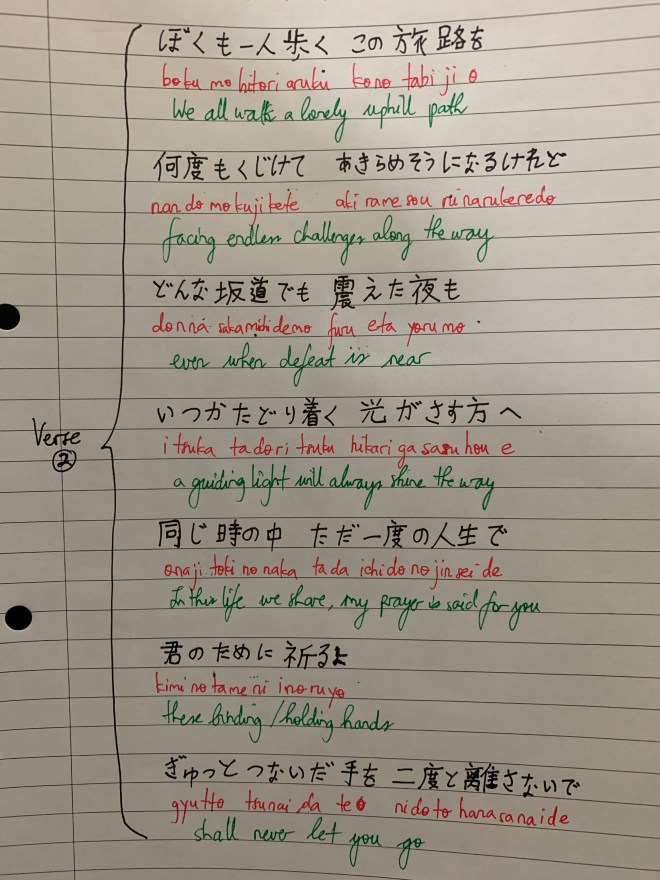 ぼくも一人歩く この旅路を
boku mo hitori aruku kono tabi ji o
We all walk a lonely uphill path
何度もくじけて あきらめそうになるけれど
nan do mo kuji kete aki rame sou ni narukeredo
facing endless challenges along the way
どんな坂道でも 震えた夜も
donna sakamichi demo furu eta yoru mo
even when defeat is near
いつかたどり着く 光がさす方へ
itsuka tadori tsuku hikari ga sasu hou e
a guiding light will always shine the way
同じ時の中 ただ一度の人生で
onaji toki no naka tada ichido no jin sei de
In this life we share, my prayer is said for you
君のために祈るよ
kimi no tame ni inoruyo
these binding / holding hands
ぎゅっとつないだ手を 二度と離さないで
gyutto tsunai da te o nido to hanasanaide
shall never let you go
Verse
②